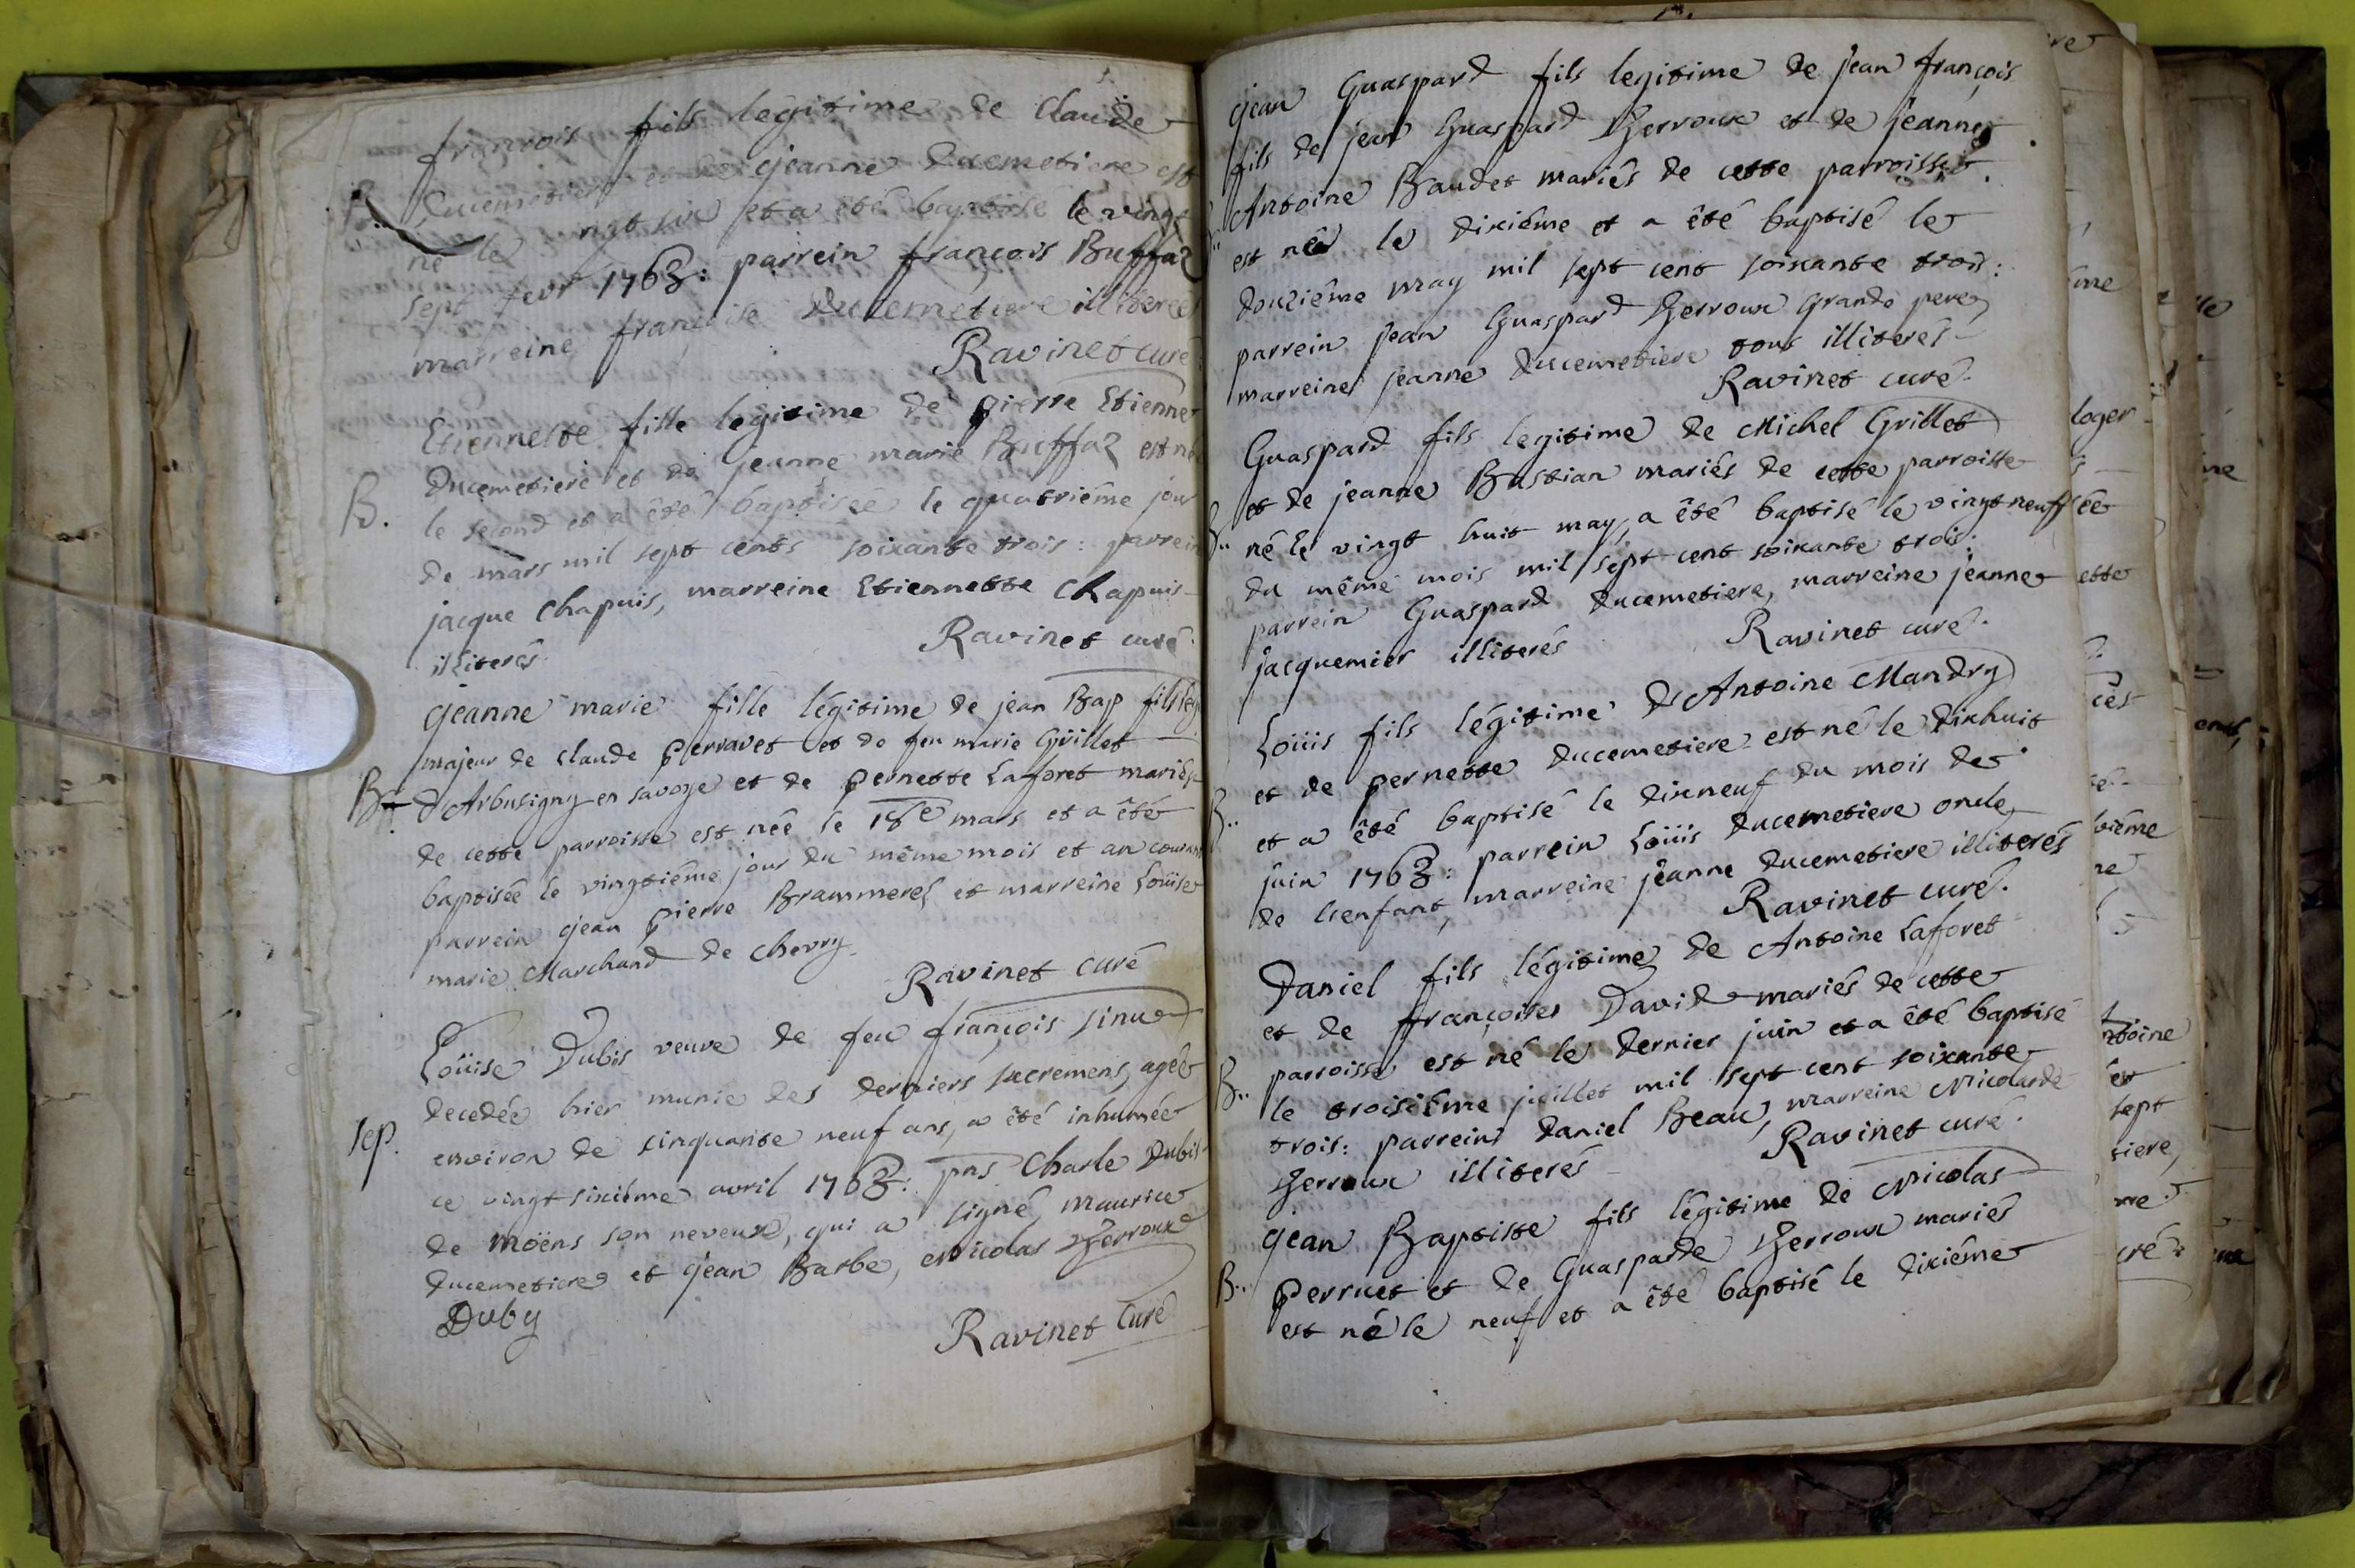 françois fils légitime de Claude
B. Ducemetiere et de jeanne Ducemetiere est
né le vingt six et a été baptisé le vingt
sept fevr 1763: parrein françois Buffaz
marreine françoise Ducemetiere illiterés
Ravinet curé
Etiennette fille legitime de pierre Etienne
Ducemetiere et de jeanne marie Buffaz est née
B. le second et a été baptisée le quatriéme jour
de mars mil sept cents soixante trois: parrein
jacque Chapuis, marreine Etiennette Chapuis
illiterés. Ravinet curé.
jeanne marie fille légitime de jean Bap fils leg
majeur de claude perravet et de feu marie Grillet
B. d'Arbusigny en savoye et de pernette Laforet mariés
de cette parroisse est née le 18e mars et a été
baptisée le vingtiéme jour du même mois et an courant
parrein jean pierre Brammerel et marreine Loüise
marie Marchand de chevry.
Ravinet curé
Loüise Dubis veuve de feu françois sinue
decedée hier munie des derniers sacremens, agée
Sep. environ de cinquante neuf ans, a été inhumée
ce vingt sixiéme avril 1763: pns Charle Dubis
de moëns son neveux, qui a signé, maurice
Ducemetiere et jean Barbe, nicolas Zerroux
Duby
Ravinet Curé
jean Guaspard fils legitime de jean françois
fils de jean Guaspard Zerroux et de jeanne
Antoine Baudet mariés de cette parroisse
B.. est né le dixiéme et a été baptisé le
douziéme may mil sept cent soixante trois:
parrein jean Guaspard Zerroux grande pere,
marreine jeanne Ducemetiere tous illiterés
Ravinet curé.
Guaspard fils legitime de Michel Grillet
et de jeanne Bastian mariés de cette parroisse
B.. né le vingt huit may, a été baptisé le vingt neuff
du même mois mil sept cent soixante trois:
parrein Guaspard Ducemetiere, marreine jeanne
jacquemier illiterés Ravinet curé.
Loüis fils légitime d'Antoine Mandry
et de pernette Ducemetiere est né le dixhuit
B.. et a été baptisé le dixneuf du mois de
juin 1763: parrein Loüis Ducemetiere oncle
de l'enfant, marreine jeanne Ducemetiere illiterés
Ravinet curé.
Daniel fils légitime de Antoine Laforet
et de françoise David mariés de cette
parroisse est né le dernier juin et a été baptisé
B.. le troisiéme juillet mil sept cent soixante
trois: parrein Daniel Beau, marreine Nicolarde
Zerroux illiterés Ravinet curé.
jean Baptiste fils légitime de Nicolas
B.. perruet et de Guasparde Zerroux mariés
est né le neuf et a été baptisé le dixiéme